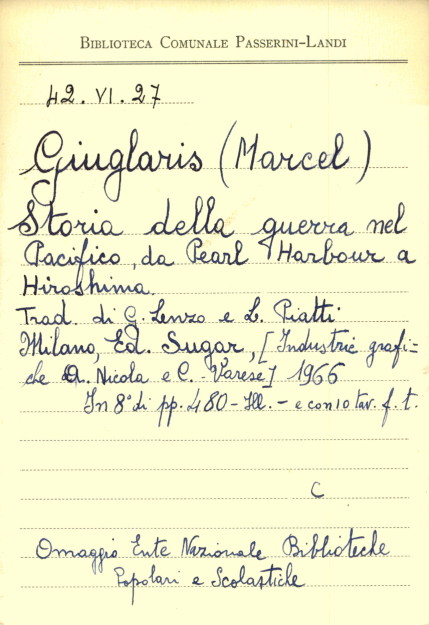 BIBLIOTECA COMUNALE PASSERINI-LANDI
42. VI. 27
Giuglaris (Marcel)
Storia della guerra nel
Pacifico, da Pearl Harbour a
Hiroshima.
Trad. di G. Lenzo e L. Piatti
Milano, Ed. Sugar, [Industrie grafi=
che A. Nicola e C. - Varese] 1966
In 8° di pp. 480 - Ill. - e con 10 tav. f. t.
C
Omaggio Ente Nazionale Biblioteche
Popolari e Scolastiche